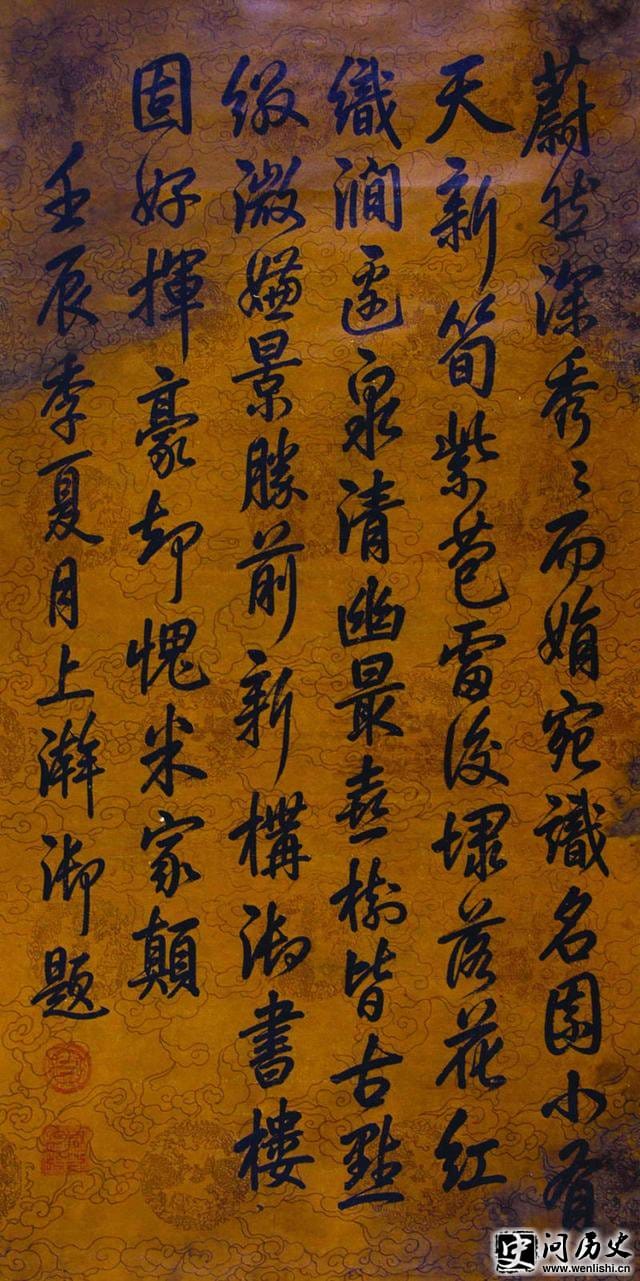 蔚然深秀〻而娟宛識名園小有
天新筍紫苞雷後埭落花紅
織澗邊泉清幽最喜樹皆古點
綴微嫌景勝前新構御書樓
固好揮豪却愧米家顛
壬辰季夏月上澣御題
史问历史
www.wenlishi.cn